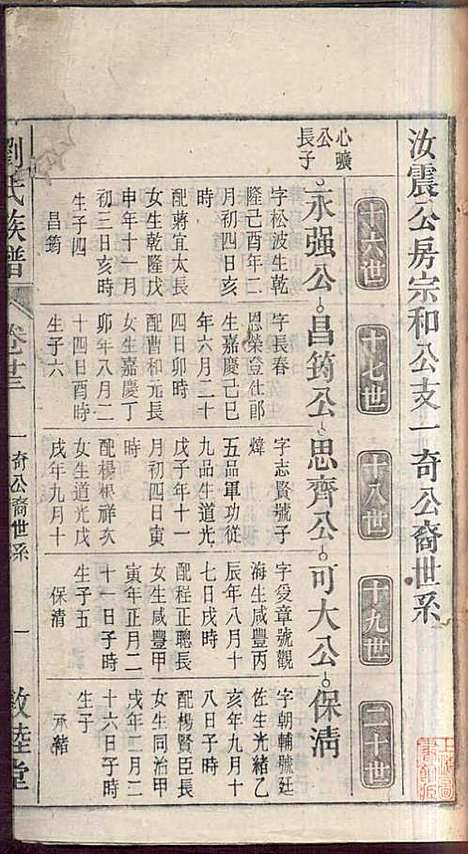 汝震公房宗和公支一奇公裔世系
十六世
十七世
十八世
十九世
二十世
心曠公長子
永强公
昌筠公
思齊公
可大公
保清
字松波生乾
隆己酉年二
月初四日亥
時
配蔣宜太長
女生乾隆戊
申年十一月
初三日亥時
生子四
昌筠
字長春
恩榮登仕郎
生嘉慶己巳
年六月二十
四日卯時
配曹和元長
女生嘉慶丁
卯年八月二
十四日酉時
生子六
字志賢號子
煒
五品軍功從
九品生道光
戊子年十一
月初四日寅
時
配楊楙祥次
女生道光戊
戌年九月十
字爰章號觀
海生咸豐丙
辰年八月十
七日戌時
配程正聰長
女生咸豐甲
寅年正月二
十一日子時
生子五
保清
字朝輔號廷
佐生光緒乙
亥年九月十
八日子時
配楊賢臣長
女生同治甲
戌年二月二
十六日子時
生子
承緒
劉氏族譜
卷廿三
一奇公裔世系
一
敦睦堂